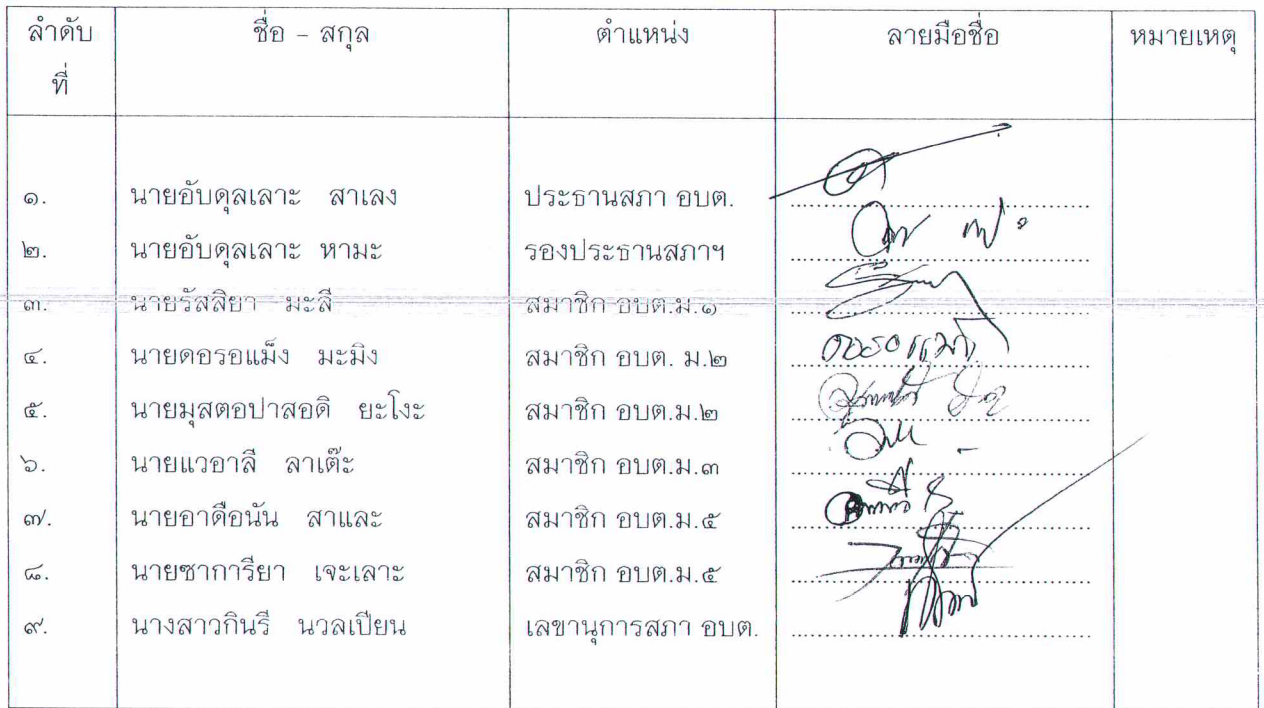 ลำดับที่ ชื่อ - สกุล ตำแหน่ง ลายมือชื่อ หมายเหตุ
๑. นายอับดุลเลาะ สาเลง ประธานสภา อบต.
๒. นายอับดุลเลาะ หามะ รองประธานสภาฯ
๓. นายรัสสิยา มะลี สมาชิก อบต.ม.๑
๔. นายดอรอแม็ง มะมิง สมาชิก อบต. ม.๒
๕. นายมุสตอปาสอดิ ยะโงะ สมาชิก อบต.ม.๒
๖. นายแวอาลี ลาเต๊ะ สมาชิก อบต.ม.๓
๗. นายอาดือนัน สาและ สมาชิก อบต.ม.๕
๘. นายซาการียา เจะเลาะ สมาชิก อบต.ม.๕
๙. นางสาวกินรี นวลเปียน เลขานุการสภา อบต.